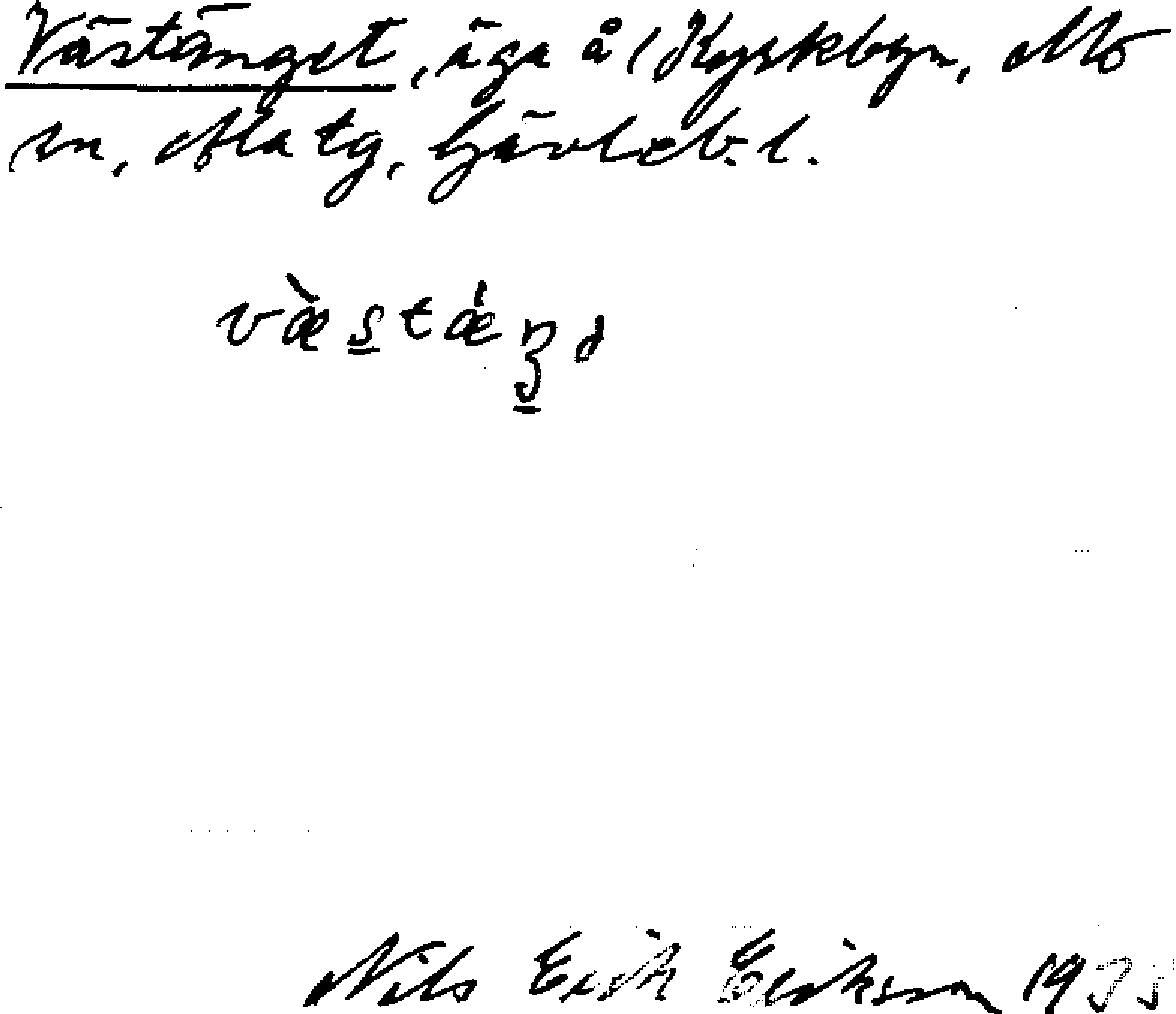 Västänget, äga å Kyrkbyn, Mo
sn, Ala tg, Gävleb. l.
væ̀stǽŋə
Nils Erik Eriksson 1933